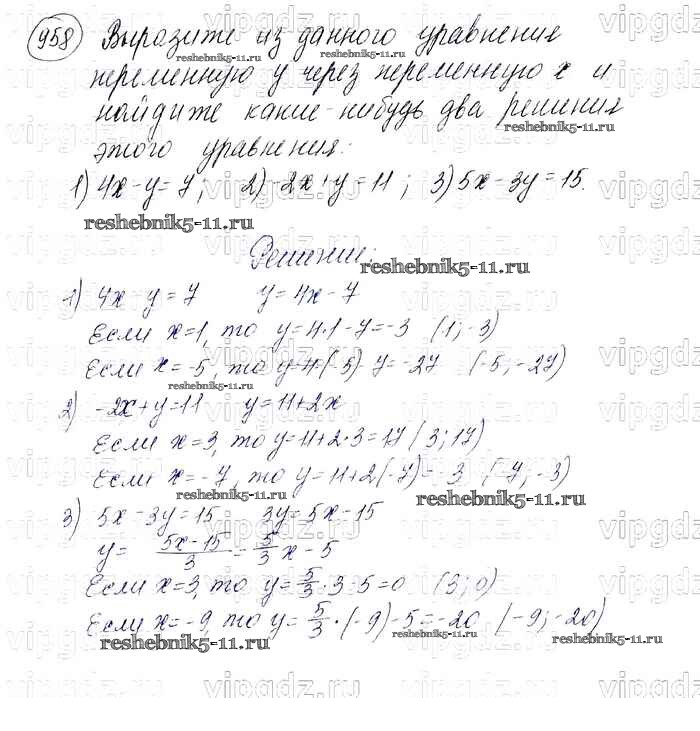 958 Выразите из данного уравнения
переменную y через переменную x и
найдите какие-нибудь два решения
этого уравнения:
1) 4x-y=7; 2) -2x+y=11; 3) 5x-3y=15.
reshebnik5-11.ru
Решение:
1) 4x-y=7 y=4x-7
Если x=1, то y=4·1-7=-3 (1;-3)
Если x=-5, то y=4·(-5)-7=-27 (-5;-27)
2) -2x+y=11 y=11+2x
Если x=3, то y=11+2·3=17 (3;17)
Если x=-7, то y=11+2(-7)=-3 (-7;-3)
3) 5x-3y=15 3y=5x-15
y= 5x-15/3 = 5/3 x-5
Если x=3, то y=5/3·3-5=0 (3;0)
Если x=-9, то y=5/3·(-9)-5=-20 (-9;-20)
reshebnik5-11.ru
vipgdz.ru